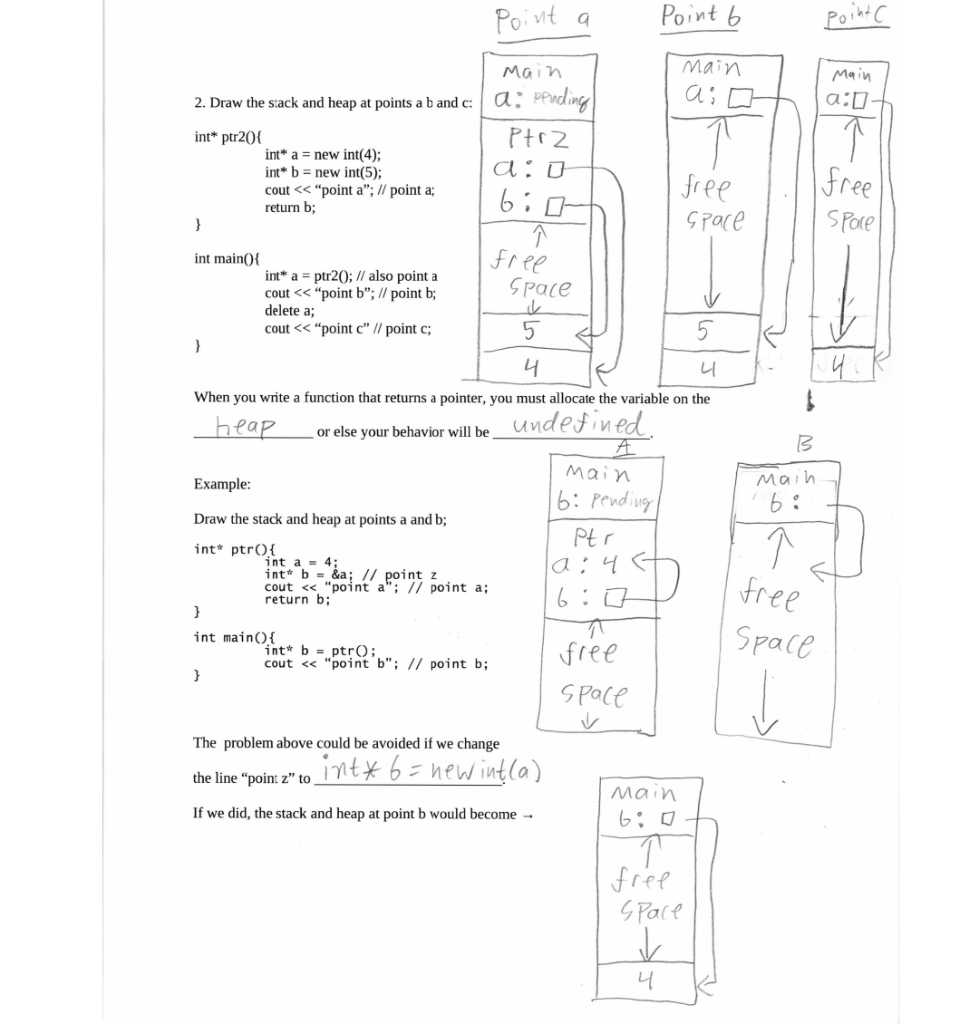 Point a
Point b
Point C
2. Draw the stack and heap at points a b and c:
int* ptr2(){
int* a = new int(4);
int* b = new int(5);
cout << “point a”; // point a;
return b;
}
int main(){
int* a = ptr2(); // also point a
cout << “point b”; // point b;
delete a;
cout << “point c” // point c;
}
Main
a: pending
Ptr2
a:
b:
free
space
5
4
Main
a:
free
space
5
4
Main
a:
free
space
4
When you write a function that returns a pointer, you must allocate the variable on the
heap or else your behavior will be undefined.
Example:
Draw the stack and heap at points a and b;
int* ptr(){
int a = 4;
int* b = &a; // point z
cout << "point a"; // point a;
return b;
}
int main(){
int* b = ptr();
cout << "point b"; // point b;
}
A
Main
b: Pending
Ptr
a: 4
b:
free
space
B
Main
b:
free
space
The problem above could be avoided if we change
the line “point z” to int* b = new int(a).
If we did, the stack and heap at point b would become →
Main
b:
free
space
4